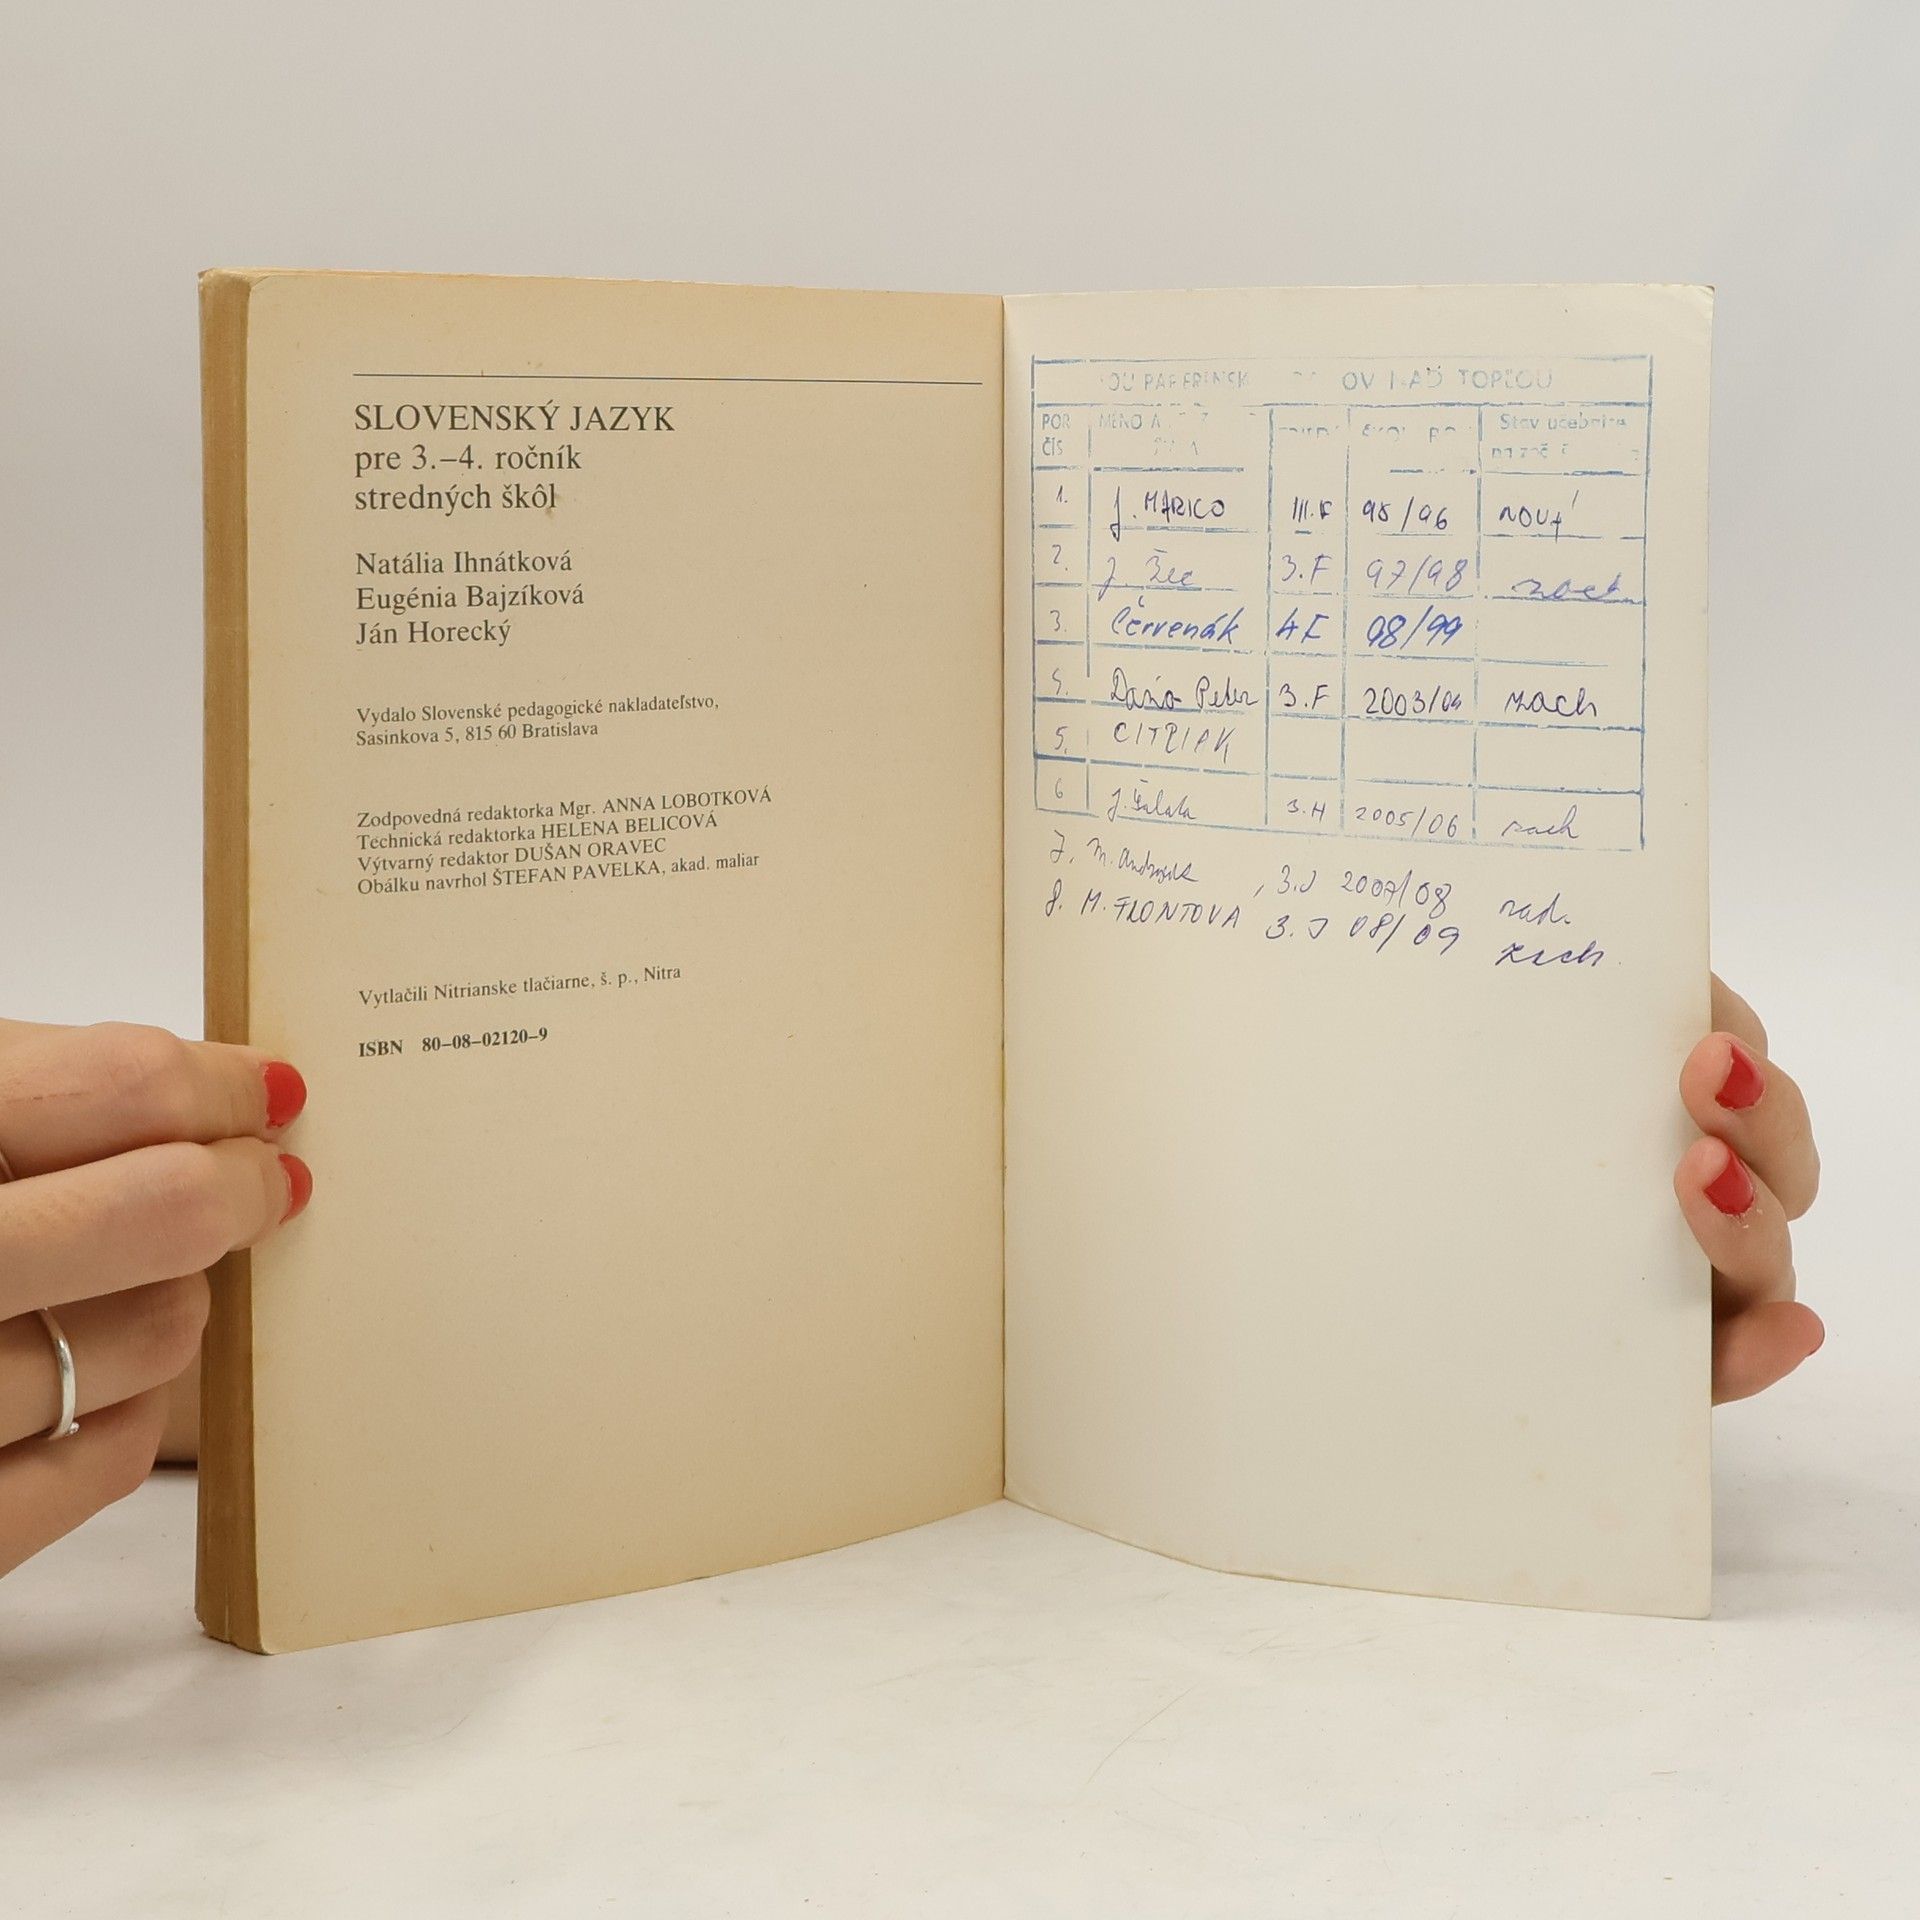 SLOVENSKÝ JAZYK
pre 3.–4. ročník
stredných škôl
Natália Ihnátková
Eugénia Bajzíková
Ján Horecký
Vydalo Slovenské pedagogické nakladateľstvo,
Sasinkova 5, 815 60 Bratislava
Zodpovedná redaktorka Mgr. ANNA LOBOTKOVÁ
Technická redaktorka HELENA BELICOVÁ
Výtvarný redaktor DUŠAN ORAVEC
Obálku navrhol ŠTEFAN PAVELKA, akad. maliar
Vytlačili Nitrianske tlačiarne, š. p., Nitra
ISBN 80–08–02120–9
TOPĽOU
POR MENO A Stav učebnice
ČÍS
1. J. MARICO III.F 95/96 nový
2. J. 3.F 97/98
3. Červenák 4F 98/99
4. Peter 3.F 2003/04 zach
5.
6 3.H 2005/06 zach
7. M. 3.J 2007/08
8. M. FLONTOVA 3.J 08/09 zach.